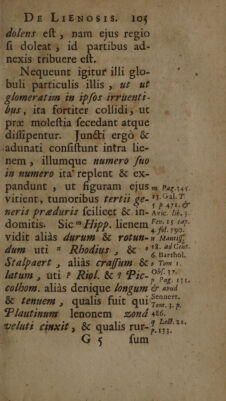 DE LIENOSIS. 105
dolens eſt, nam ejus regio
ſi doleat, id partibus ad-
nexis tribuere eſt.
Nequeunt igitur illi glo-
buli particulis illis, ut ut
glomeratim in ipſos irruenti-
bus, ita fortiter collidi, ut
præ moleſtia ſecedant atque
diſſipentur. Juncti ergò &
adunati conſiſtunt intra lie-
nem, illumque numero ſuo
in numero ita replent & ex-
pandunt, ut figuram ejus
vitient, tumoribus tertii ge-
neris præduris ſcilicet & in-
domitis. Sic m Hipp. lienem
vidit aliàs durum & rotun-
dum uti n Rhodius, & o
Stalpaert, aliàs craſſum &
latum, uti p Riol. & q Pic-
colhom. aliàs denique longum
& tenuem, qualis fuit qui
Plautinum lenonem zonâ
veluti cinxit, & qualis rur-
G 5 ſum
m Pag. 145.
13. Gal. T.
5 p. 471. &
Avic. lib. 3.
Fen. 15 107.
4. fol. 790.
n Mantiſſ.
18. ad Cent.
6. Barthol.
o Tom 1.
Obſ. 37.
p Pag. 131.
& apud
Sennert.
Tom. 3. p.
486.
q Lect. 21.
p. 133.